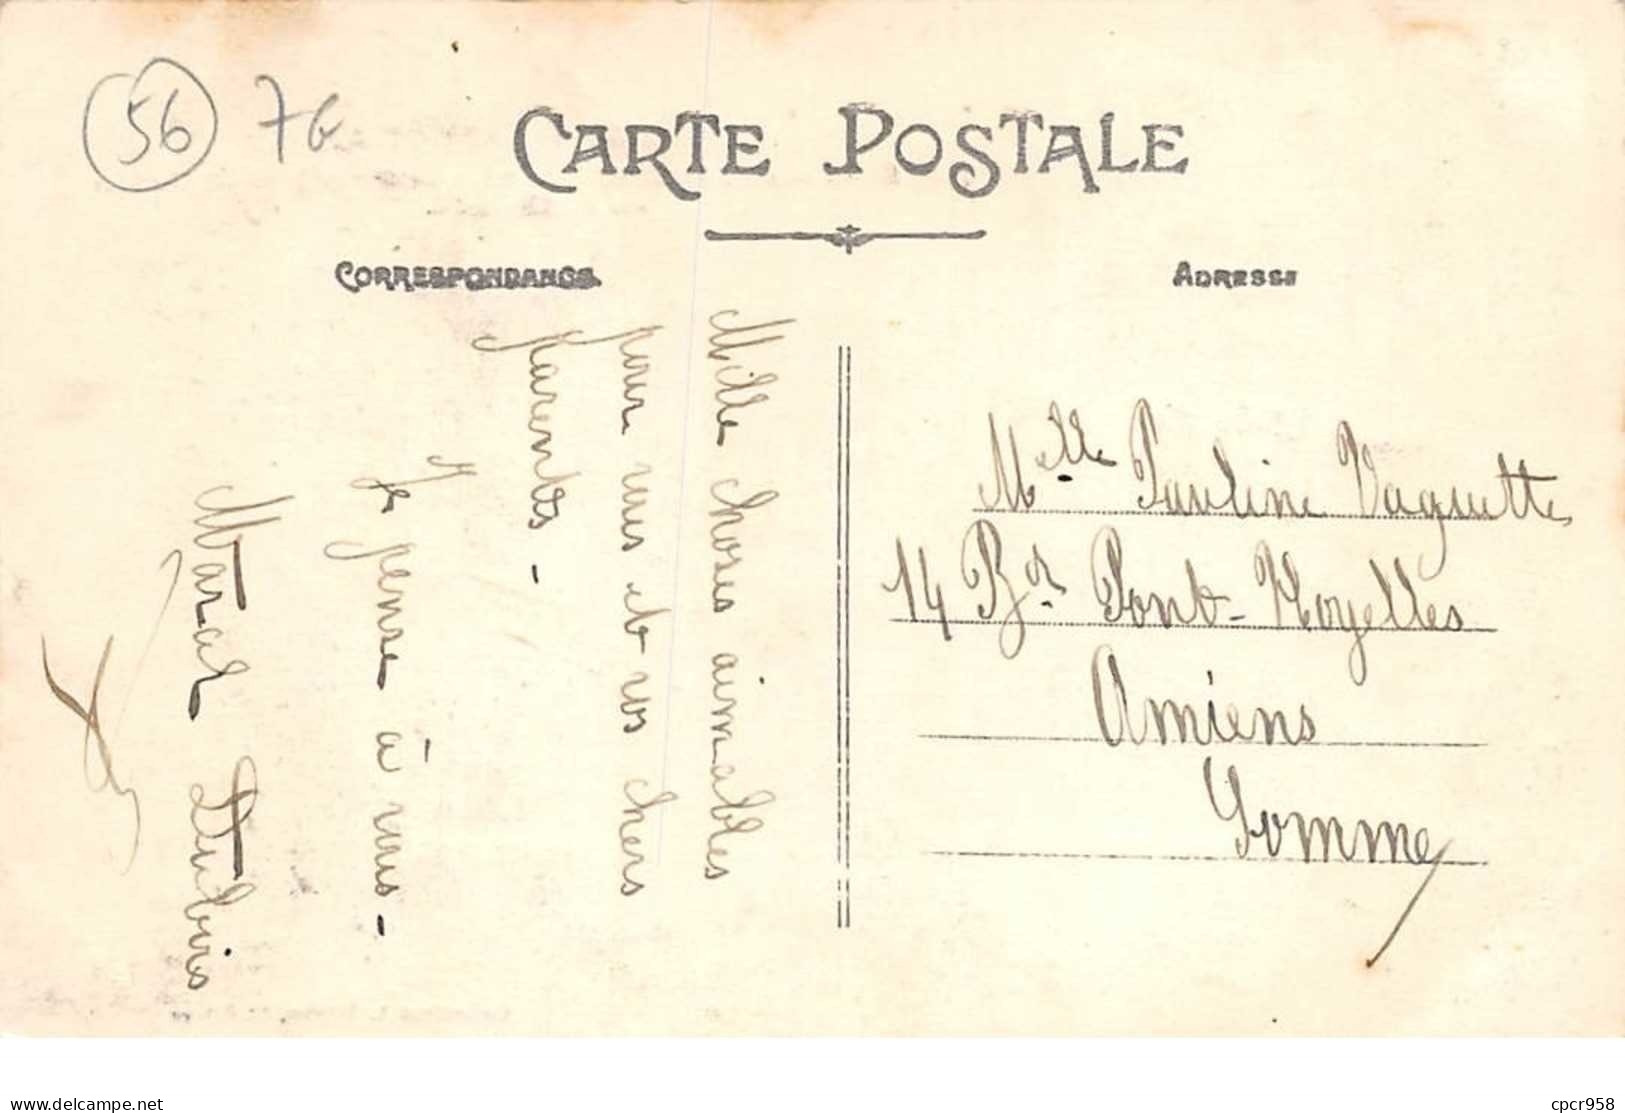 56 76
CARTE POSTALE
CORRESPONDANCE
ADRESSE
Mille choses aimables
pour vous et vos chers
parents -
Je pense à vous -
Marcel Dubois
Mlle Pauline Vaquette
14 Bd Pont-Noyelles
Amiens
Somme
www.delcampe.net
cpcr958